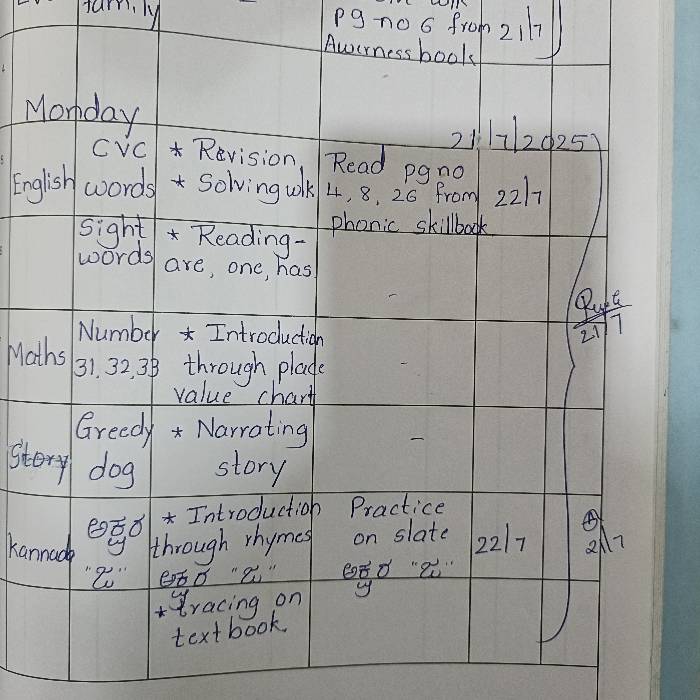 family
pg no 6 from 21/7
Awerness book
Monday
21/7/2025
English
CVC
words
* Revision
* Solving wk
Read pg no
4, 8, 26 from
phonic skillbook
22/7
Sight
words
* Reading-
are, one, has
-
Maths
Number
31, 32, 33
* Introduction
through place
value chart
-
21/7
Story
Greedy
dog
* Narrating
story
-
Kannada
ಅಕ್ಷರ
* Introduction
through rhymes
ಅಕ್ಷರ
* tracing on
textbook
Practice
on slate
ಅಕ್ಷರ
22/7
21/7